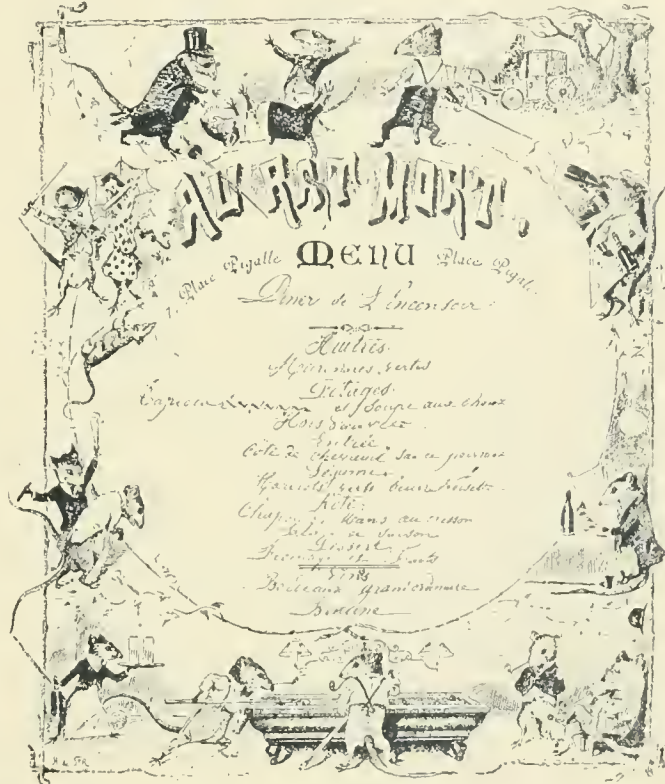 AU RAT MORT.
7, Place Pigalle MENU Place Pigalle
Diner de L'encensoir
Huitres
vertes
Potages
et Soupe aux choux
Hors d'œuvres
Entrée
Côte de chevreuil
Légumes
Haricots verts
Roti
Chapon du Mans au cresson
Salade de saison
Dessert
Fromages Fruits
Vins
Bordeaux grand ordinaire